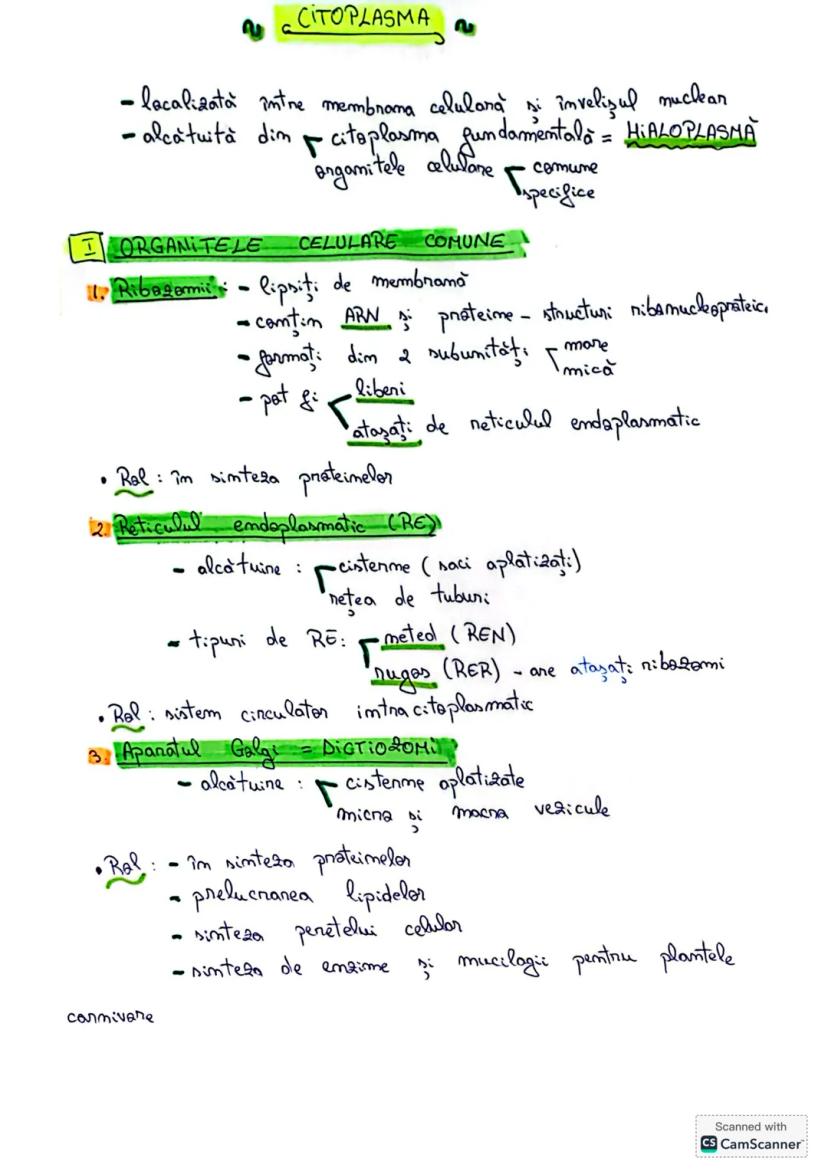 ~ CITOPLASMA ~
- localizată între membrana celulară și învelișul nuclear
- alcătuită din citoplasma fundamentală = HIALOPLASMĂ
organitele celulare comune
specifice
I ORGANITELE CELULARE COMUNE
1. Ribozomii: - lipsiți de membrană
- conțin ARN și proteine - structuri ribonucleoproteice
- formați din 2 subunități mare
mică
- pot fi liberi
atașați de reticulul endoplasmatic
• Rol: în sinteza proteinelor
2. Reticulul endoplasmatic (RE)
- alcătuire: cisterne (saci aplatizați)
rețea de tuburi
- tipuri de RE: neted (REN)
rugos (RER) - are atașați ribozomi
• Rol: sistem circulator intracitoplasmatic
3. Aparatul Golgi = DICTIOZOMI
- alcătuire: cisterne aplatizate
micro și macro vezicule
• Rol: - în sinteza proteinelor
- prelucrarea lipidelor
- sinteza peretelui celular
- sinteza de enzime și mucilagii pentru plantele
carnivore
Scanned with
CS CamScanner